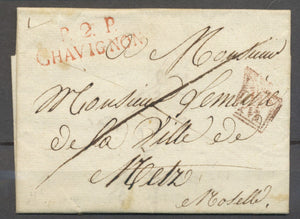 P. 2. P.
CHAVIGNON
A Monsieur
Monsieur Lemoine
de la Ville de
Metz
Moselle